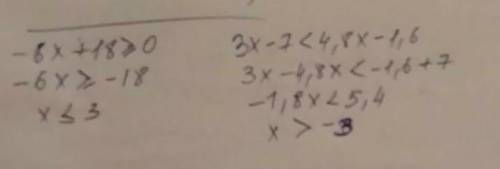 -6x+18≥0
-6x≥-18
x≤3
3x-7<4,8x-1,6
3x-4,8x<-1,6+7
-1,8x<5,4
x>-3